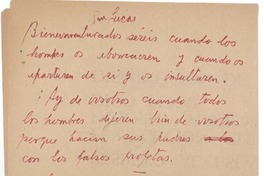 San Lucas
Bienaventurados seréis cuando los
hombres os aborrecieren y cuando os
apartaren de sí y os insultaren.
¡Ay de vosotros cuando todos
los hombres dijeren bien de vosotros
porque hacían sus padres
con los falsos profetas.